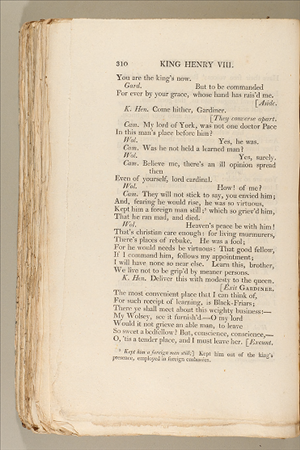 310 KING HENRY VIII.
You are the king's now.
Gard. But to be commanded
For ever by your grace, whose hand has rais'd me.
[Aside.
K. Hen. Come hither, Gardiner.
[They converse apart.
Cam. My lord of York, was not one doctor Pace
In this man's place before him?
Wol. Yes, he was.
Cam. Was he not held a learned man?
Wol. Yes, surely.
Cam. Believe me, there's an ill opinion spread
then
Even of yourself, lord cardinal.
Wol. How! of me?
Cam. They will not stick to say, you envied him;
And, fearing he would rise, he was so virtuous,
Kept him a foreign man still;⁵ which so griev'd him,
That he ran mad, and died.
Wol. Heaven's peace be with him!
That's christian care enough: for living murmurers,
There's places of rebuke. He was a fool;
For he would needs be virtuous: That good fellow,
If I command him, follows my appointment;
I will have none so near else. Learn this, brother,
We live not to be grip'd by meaner persons.
K. Hen. Deliver this with modesty to the queen.
[Exit GARDINER.
The most convenient place that I can think of,
For such receipt of learning, is Black-Friars;
There ye shall meet about this weighty business:—
My Wolsey, see it furnish'd.—O my lord
Would it not grieve an able man, to leave
So sweet a bedfellow? But, conscience, conscience,—
O, 'tis a tender place, and I must leave her. [Exeunt.
⁵ Kept him a foreign man still;] Kept him out of the king's
presence, employed in foreign embassies.